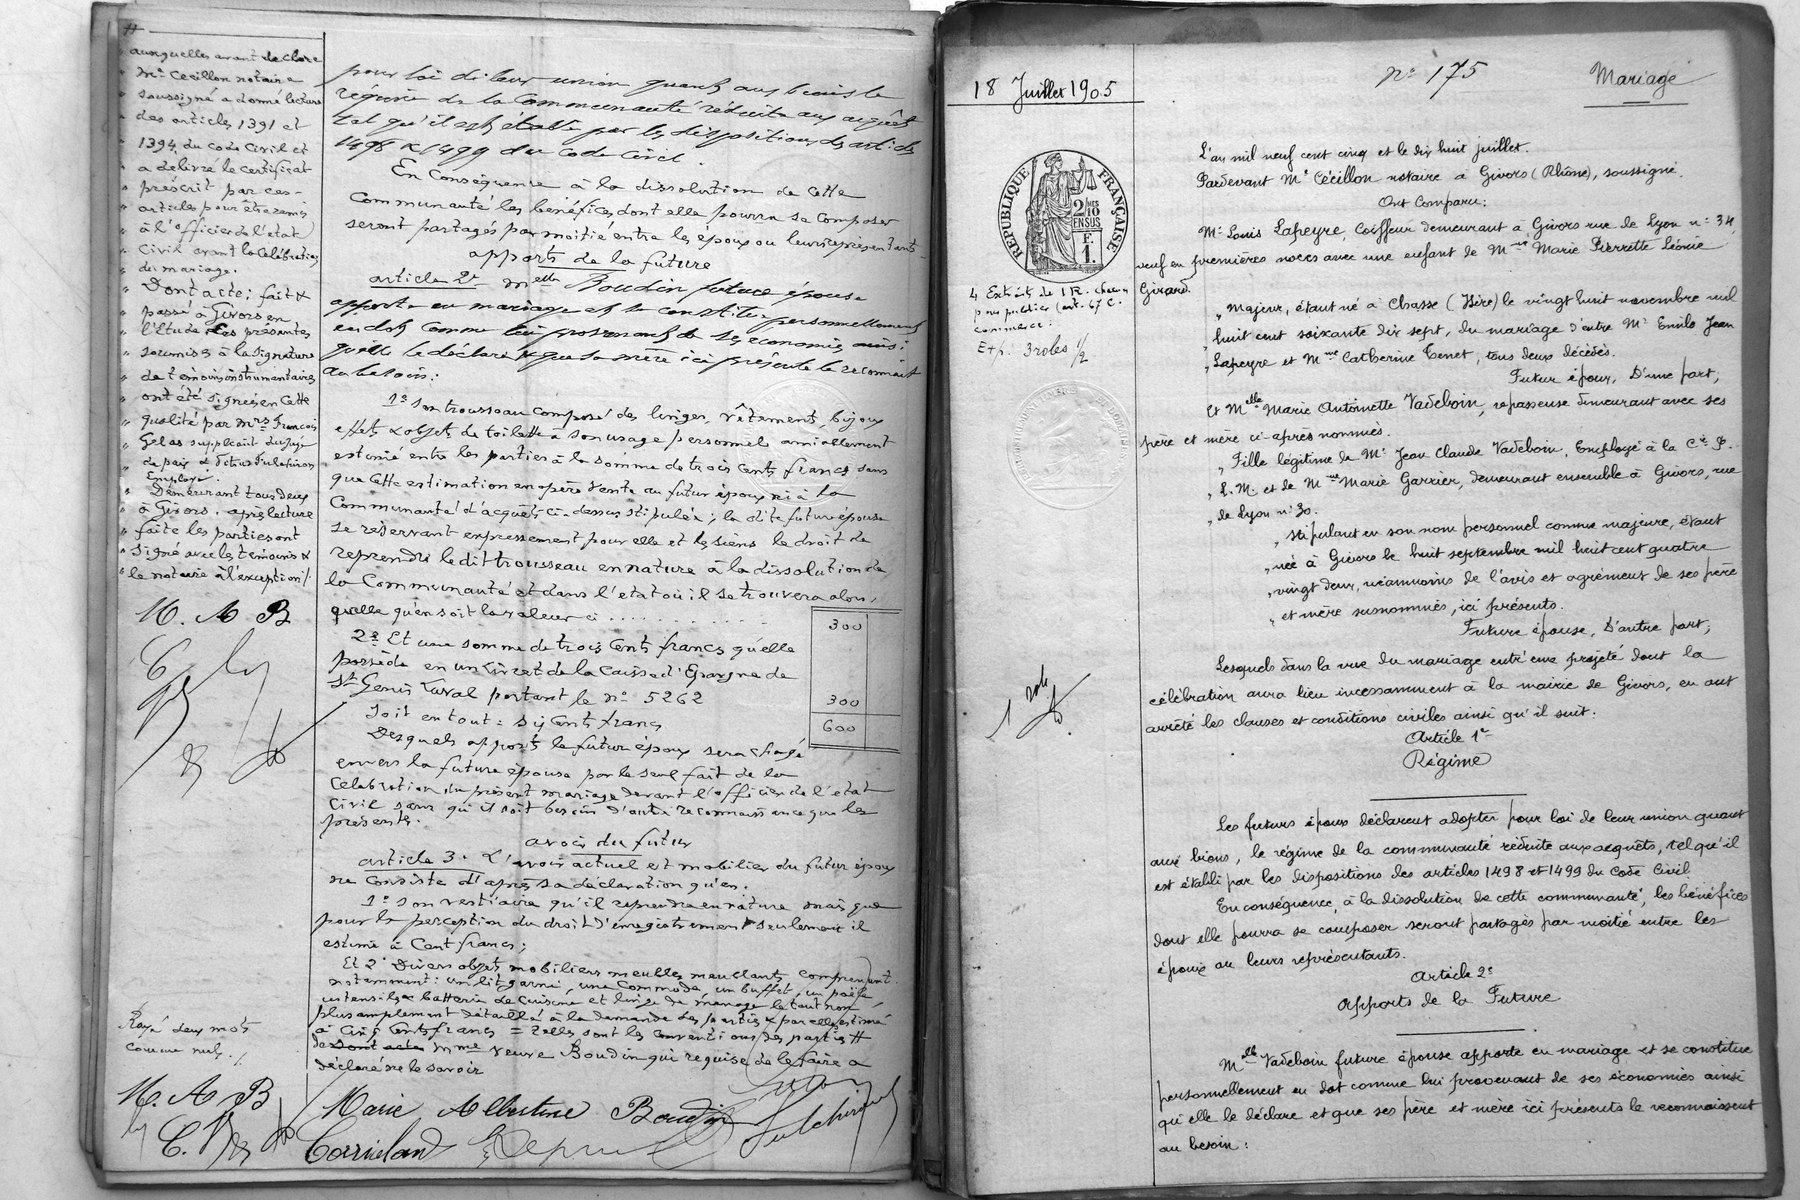 #
auxquelles avant de clore
Me Cécillon notaire
soussigné a donné lecture
des articles 1391 et
1394 du code Civil et
a délivré le certificat
préscrit par ces
articles pour être remis
à l'officier de l'état
Civil avant la Célébration
du mariage.
Dont acte; fait &
passé à Givors en
l'Etude Les présentes
soumises à la signature
de témoins instrumentaires
ont été signées en Cette
qualité par Mrs François
Gelas suppléant du juge
de paix &
Employé.
Demeurant tous deux
à Givors. après lecture
faite les parties ont
signé avec les témoins &
le notaire à l'exception /.
M. A B
Rayé deux mots
comme nuls. /.
M. A B
pour loi de leur union quant aux biens le
régime de la Communauté réduite aux acquêts
tel qu'il est établi par les dispositions des articles
1498 & 1499 du Code Civil.
En Conséquence à la dissolution de Cette
Communauté les bénéfices dont elle pourra se Composer
seront partagés par moitié entre les époux ou leurs représentants
apports de la future
article 2e Melle Boudin future épouse
apporte en mariage et se constitue personnellement
en dot comme lui provenant de ses économies ainsi
qu'elle le déclare & que sa mère ici présente le reconnait
au besoin:
1º Son trousseau composé des linges, vêtements, bijoux
effets & objets de toilette à son usage personnel amiablement
estimé entre les parties à la somme de trois Cents francs sans
que Cette estimation en opère vente au futur époux ni à la
Communauté d'acquêts ci-dessus stipulée; la dite future épouse
se réservant expressement pour elle et les siens le droit de
reprendre le dit trousseau en nature à la dissolution de
la Communauté et dans l'état où il se trouvera alors,
quelle qu'en soit la valeur ci . . . . . . . . . . 300
2º Et une somme de trois Cents francs qu'elle
possède en un Livret de la Caisse d'Epargne de
St Genis Laval portant le nº 5262 300
Soit en tout: six Cents francs 600
Desquels apports le futur époux sera chargé
envers la future épouse par le seul fait de la
Célébration du présent mariage devant l'officier de l'état
Civil sans qu'il soit besoin d'autre reconnaissance que les
présentes.
avoir du futur
article 3. L'avoir actuel et mobilier du futur époux
ne Consiste d'après sa déclaration qu'en.
1º son vestiaire qu'il reprendra en nature mais que
pour la perception du droit d'enregistrement seulement il
estime à Cent francs;
Et 2º Divers objets mobiliers meubles meublants, comprenant
notamment: un lit garni, une Commode, un buffet, un poêle,
ustensiles & batterie de Cuisine et linge de ménage le tout non
plus amplement détaillé à la demande des parties & par elles estimé
à Cinq Cents francs = Telles sont les Conventions des parties #
de Dont acte Mme veuve Boudin qui requise de le faire a
déclaré ne le savoir
Marie Albertine Boudin
18 Juillet 1905
nº 175
Mariage
RÉPUBLIQUE FRANÇAISE
2/10 EN SUS
F. 1.
4 Extraits de 1 R. chacun
pour publier (art. 67 C.
commerce:
Exp: 3 roles 1/2
1 role
L'an mil neuf cent cinq et le dix huit juillet.
Pardevant Me Cécillon notaire à Givors (Rhône), soussigné.
Ont Comparu:
Mr Louis Lapeyre, Coiffeur demeurant à Givors rue de Lyon nº 34
veuf en premières noces avec une enfant de Mme Marie Pierrette Léonie
Girard.
„ Majeur, étant né à Chasse (Isère) le vingt huit novembre mil
„ huit cent soixante dix sept, du mariage d'entre Mr Emile Jean
„ Lapeyre et Mme Catherine Tenet, tous deux décédés.
Futur époux, D'une part,
Et Melle Marie Antoinette Vadeboin, repasseuse demeurant avec ses
père et mère ci-après nommés.
„ Fille légitime de Mr Jean Claude Vadeboin, Employé à la Cie P.
„ L. M. et de Mme Marie Garrier, demeurant ensemble à Givors, rue
„ de Lyon nº 30.
„ Stipulant en son nom personnel comme majeure, étant
„ née à Givors le huit septembre mil huit cent quatre
„ vingt deux, néanmoins de l'avis et agrément de ses père
„ et mère susnommés, ici présents.
Future épouse, D'autre part,
Lesquels dans la vue du mariage entr'eux projeté dont la
célébration aura lieu incessamment à la mairie de Givors, en ont
arrêté les clauses et conditions civiles ainsi qu'il suit:
Article 1er
Régime
Les futurs époux déclarent adopter pour loi de leur union quant
aux biens, le régime de la communauté réduite aux acquêts, tel qu'il
est établi par les dispositions des articles 1498 et 1499 du Code Civil
En conséquence, à la dissolution de cette communauté, les bénéfices
dont elle pourra se composer seront partagés par moitié entre les
époux ou leurs représentants.
Article 2e
Apports de la Future
Melle Vadeboin future épouse apporte en mariage et se constitue
personnellement en dot comme lui provenant de ses économies ainsi
qu'elle le déclare et que ses père et mère ici présents le reconnaissent
au besoin: